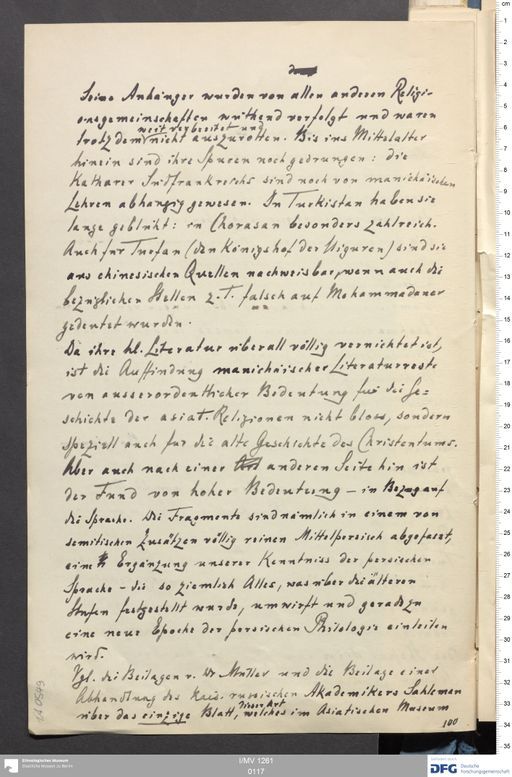 Seine Anhänger wurden von allen anderen Religi-
onsgemeinschaften wüthend verfolgt und waren
weit verbreitet und
trotzdem nicht auszurotten. Bis ins Mittelalter
hinein sind ihre Spuren noch gedrungen: die
Katharer Südfrankreichs sind noch von manichäischen
Lehren abhängig gewesen. In Turkistan haben sie
lange geblüht: in Chorasan besonders zahlreich.
Auch für Turfan (den Königshof der Uiguren) sind sie
aus chinesischen Quellen nachweisbar, wenn auch die
bezüglichen Stellen z. T. falsch auf Mohammadaner
gedeutet wurden.
Da ihre hl. Literatur überall völlig vernichtet ist,
ist die Auffindung manichäischer Literaturreste
von ausserordentlicher Bedeutung für die Ge=
schichte der asiat. Religionen nicht bloss, sondern
speziell auch für die alte Geschichte des Christentums.
Aber auch nach einer anderen Seite hin ist
der Fund von hoher Bedeutung – in Bezug auf
die Sprache. Die Fragmente sind nämlich in einem von
semitischen Zusätzen völlig reinen Mittelpersisch abgefasst,
eine Ergänzung unserer Kenntniss der persischen
Sprache – die so ziemlich Alles, was über die älteren
Stufen festgestellt wurde, umwirft und geradezu
eine neue Epoche der persischen Philologie einleiten
wird.
Vgl. die Beilagen v. Dr Müller und die Beilage einer
Abhandlung des Kais. russischen Akademikers Salemann
über das einzige Blatt, dieser Art welches im Asiatischen Museum
100
I/MV 1261
0117
Ethnologisches Museum
Staatliche Museen zu Berlin
DFG Deutsche
Forschungsgemeinschaft